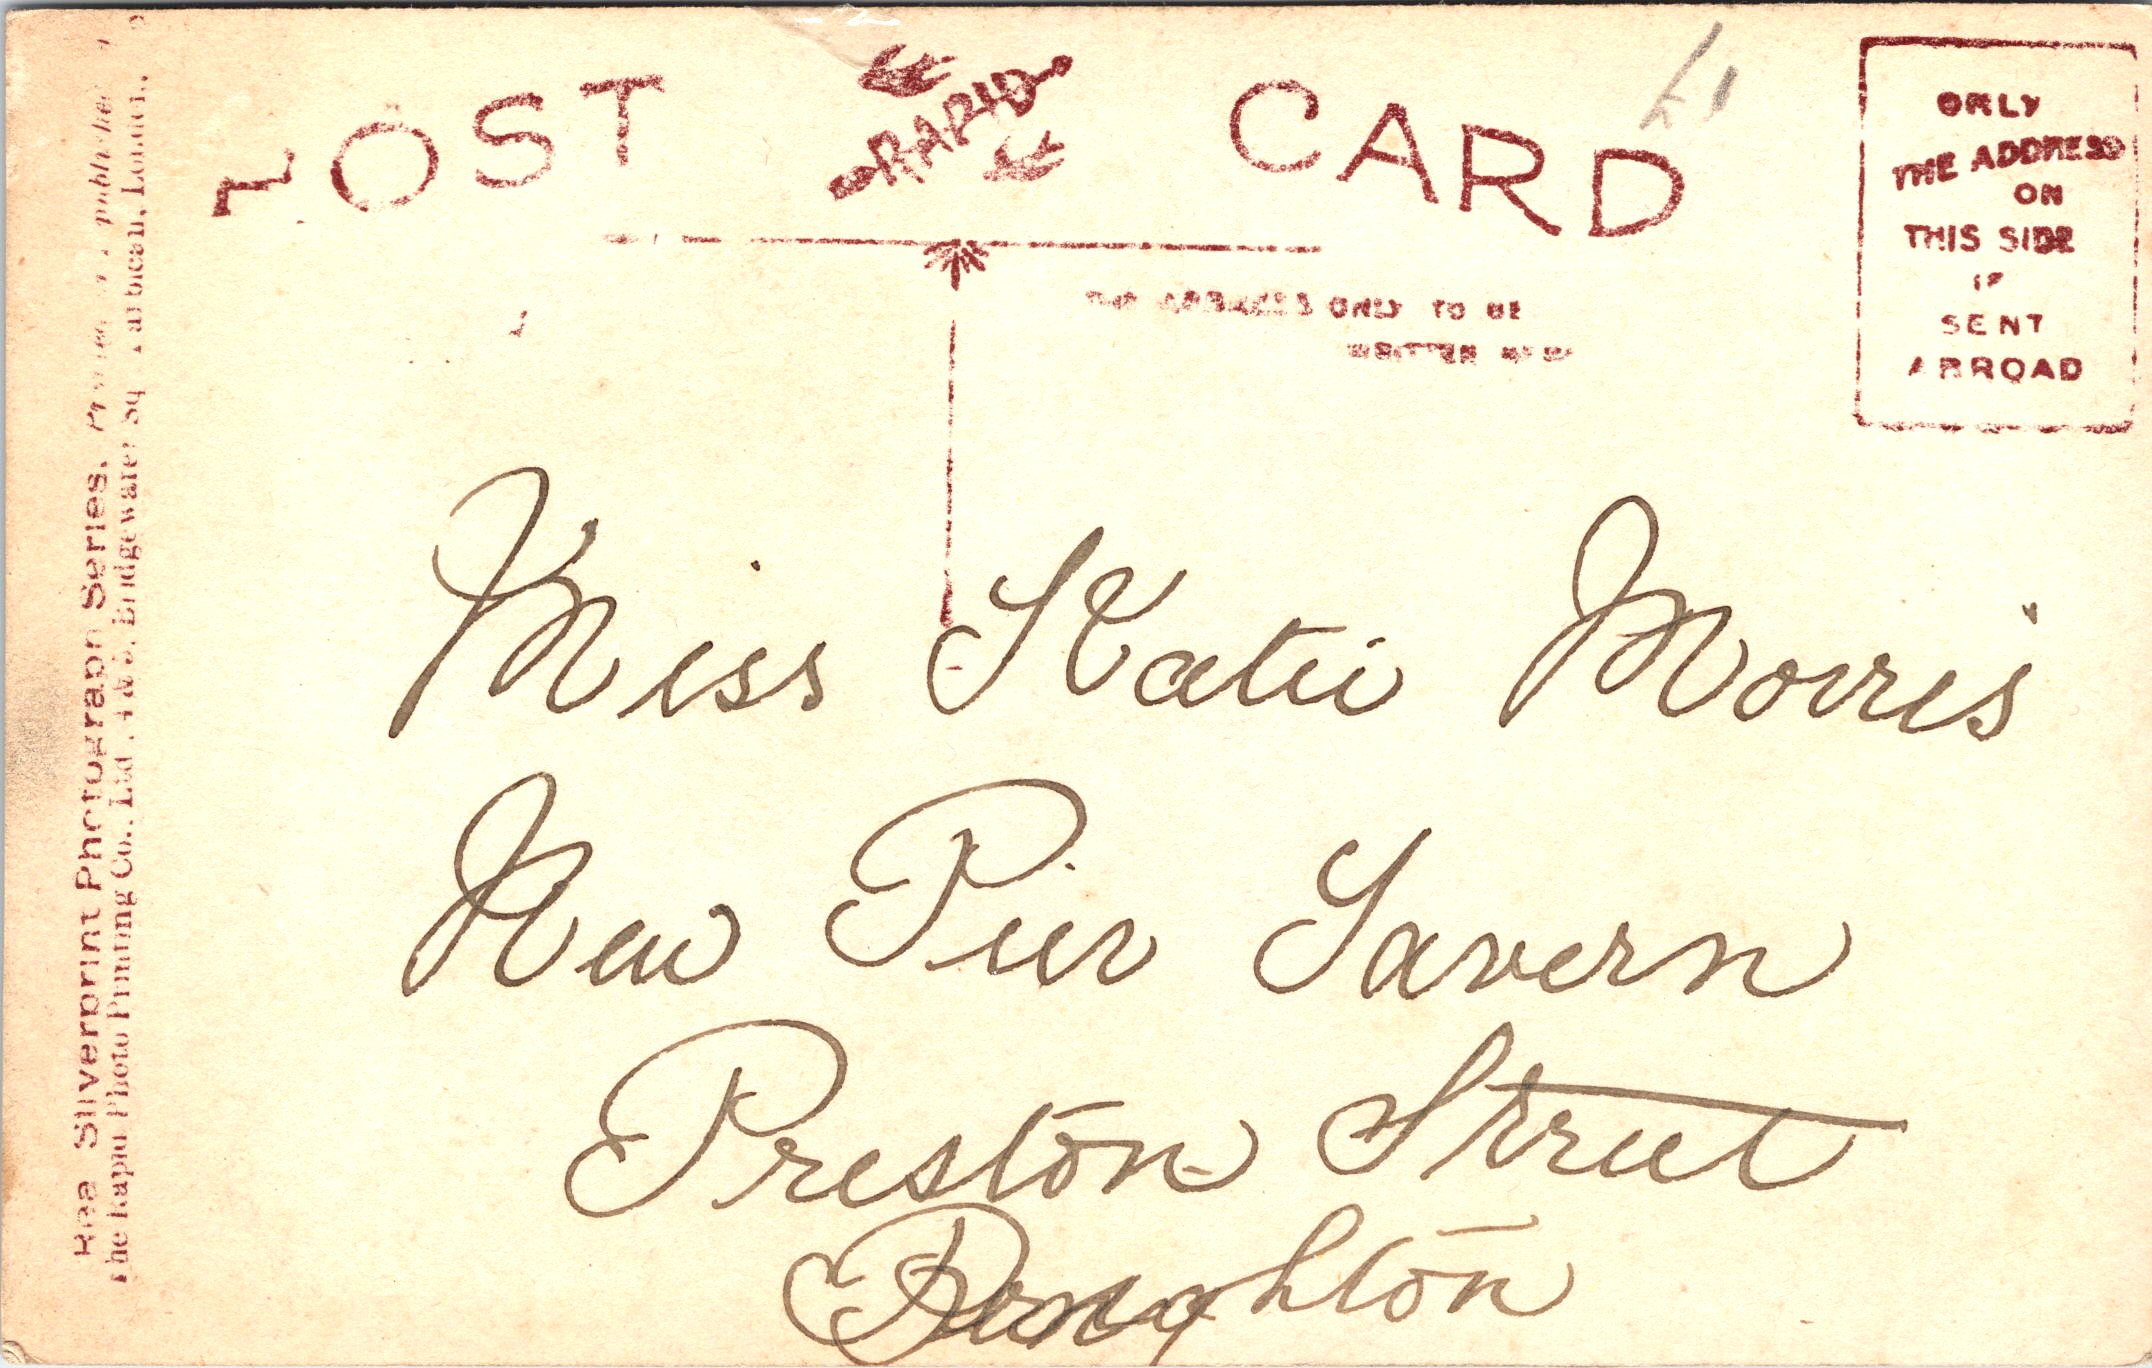 POST RAPID CARD
ONLY
THE ADDRESS
ON
THIS SIDE
IF
SENT
ABROAD
THE ADDRESS ONLY TO BE
WRITTEN HERE
Miss Katie Morris
New Pier Tavern
Preston Street
Brighton
Real Silverprint Photograph Series.
The Rapid Photo Printing Co., Ltd. Bridgewater Sq. Barbican, London.